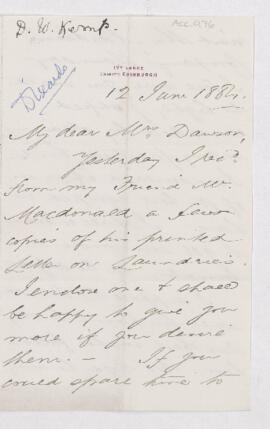 D. W. Kemp.
ACC.976
Discards
IVY LODGE
TRINITY, EDINBURGH
12 June 1884.
My dear Mrs Dawson,
Yesterday I recd.
from my Friend Mr.
Macdonald a few
copies of his printed
Letter on Laundries.
I enclose one & shall
be happy to give you
more if you desire
them. — If you
could spare time to